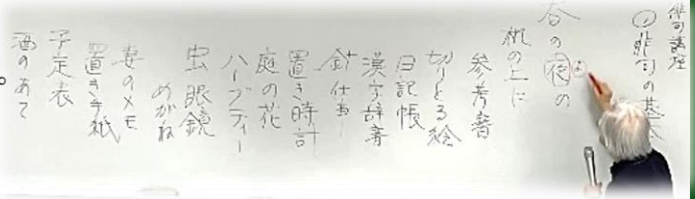 俳句講座
①俳句の基
春の夜の
机の上に
参考書
切りとる絵
日記帳
漢字辞書
針仕事
置き時計
庭の花
ハーブティー
虫眼鏡
めがね
妻のメモ
置き手紙
予定表
酒のあて